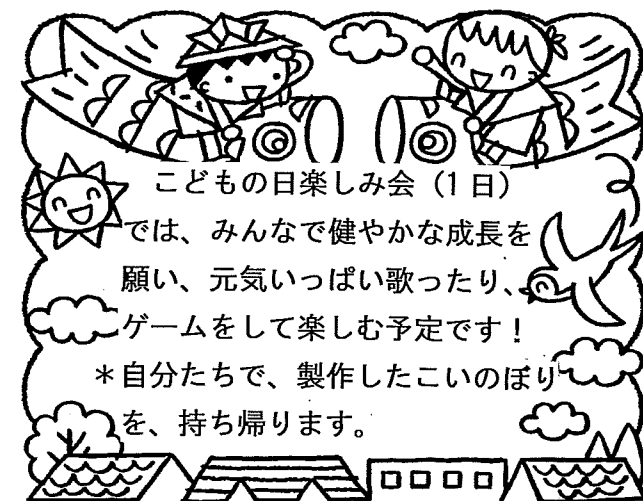 こどもの日楽しみ会（1日）
では、みんなで健やかな成長を
願い、元気いっぱい歌ったり、
ゲームをして楽しむ予定です！
＊自分たちで、製作したこいのぼり
を、持ち帰ります。